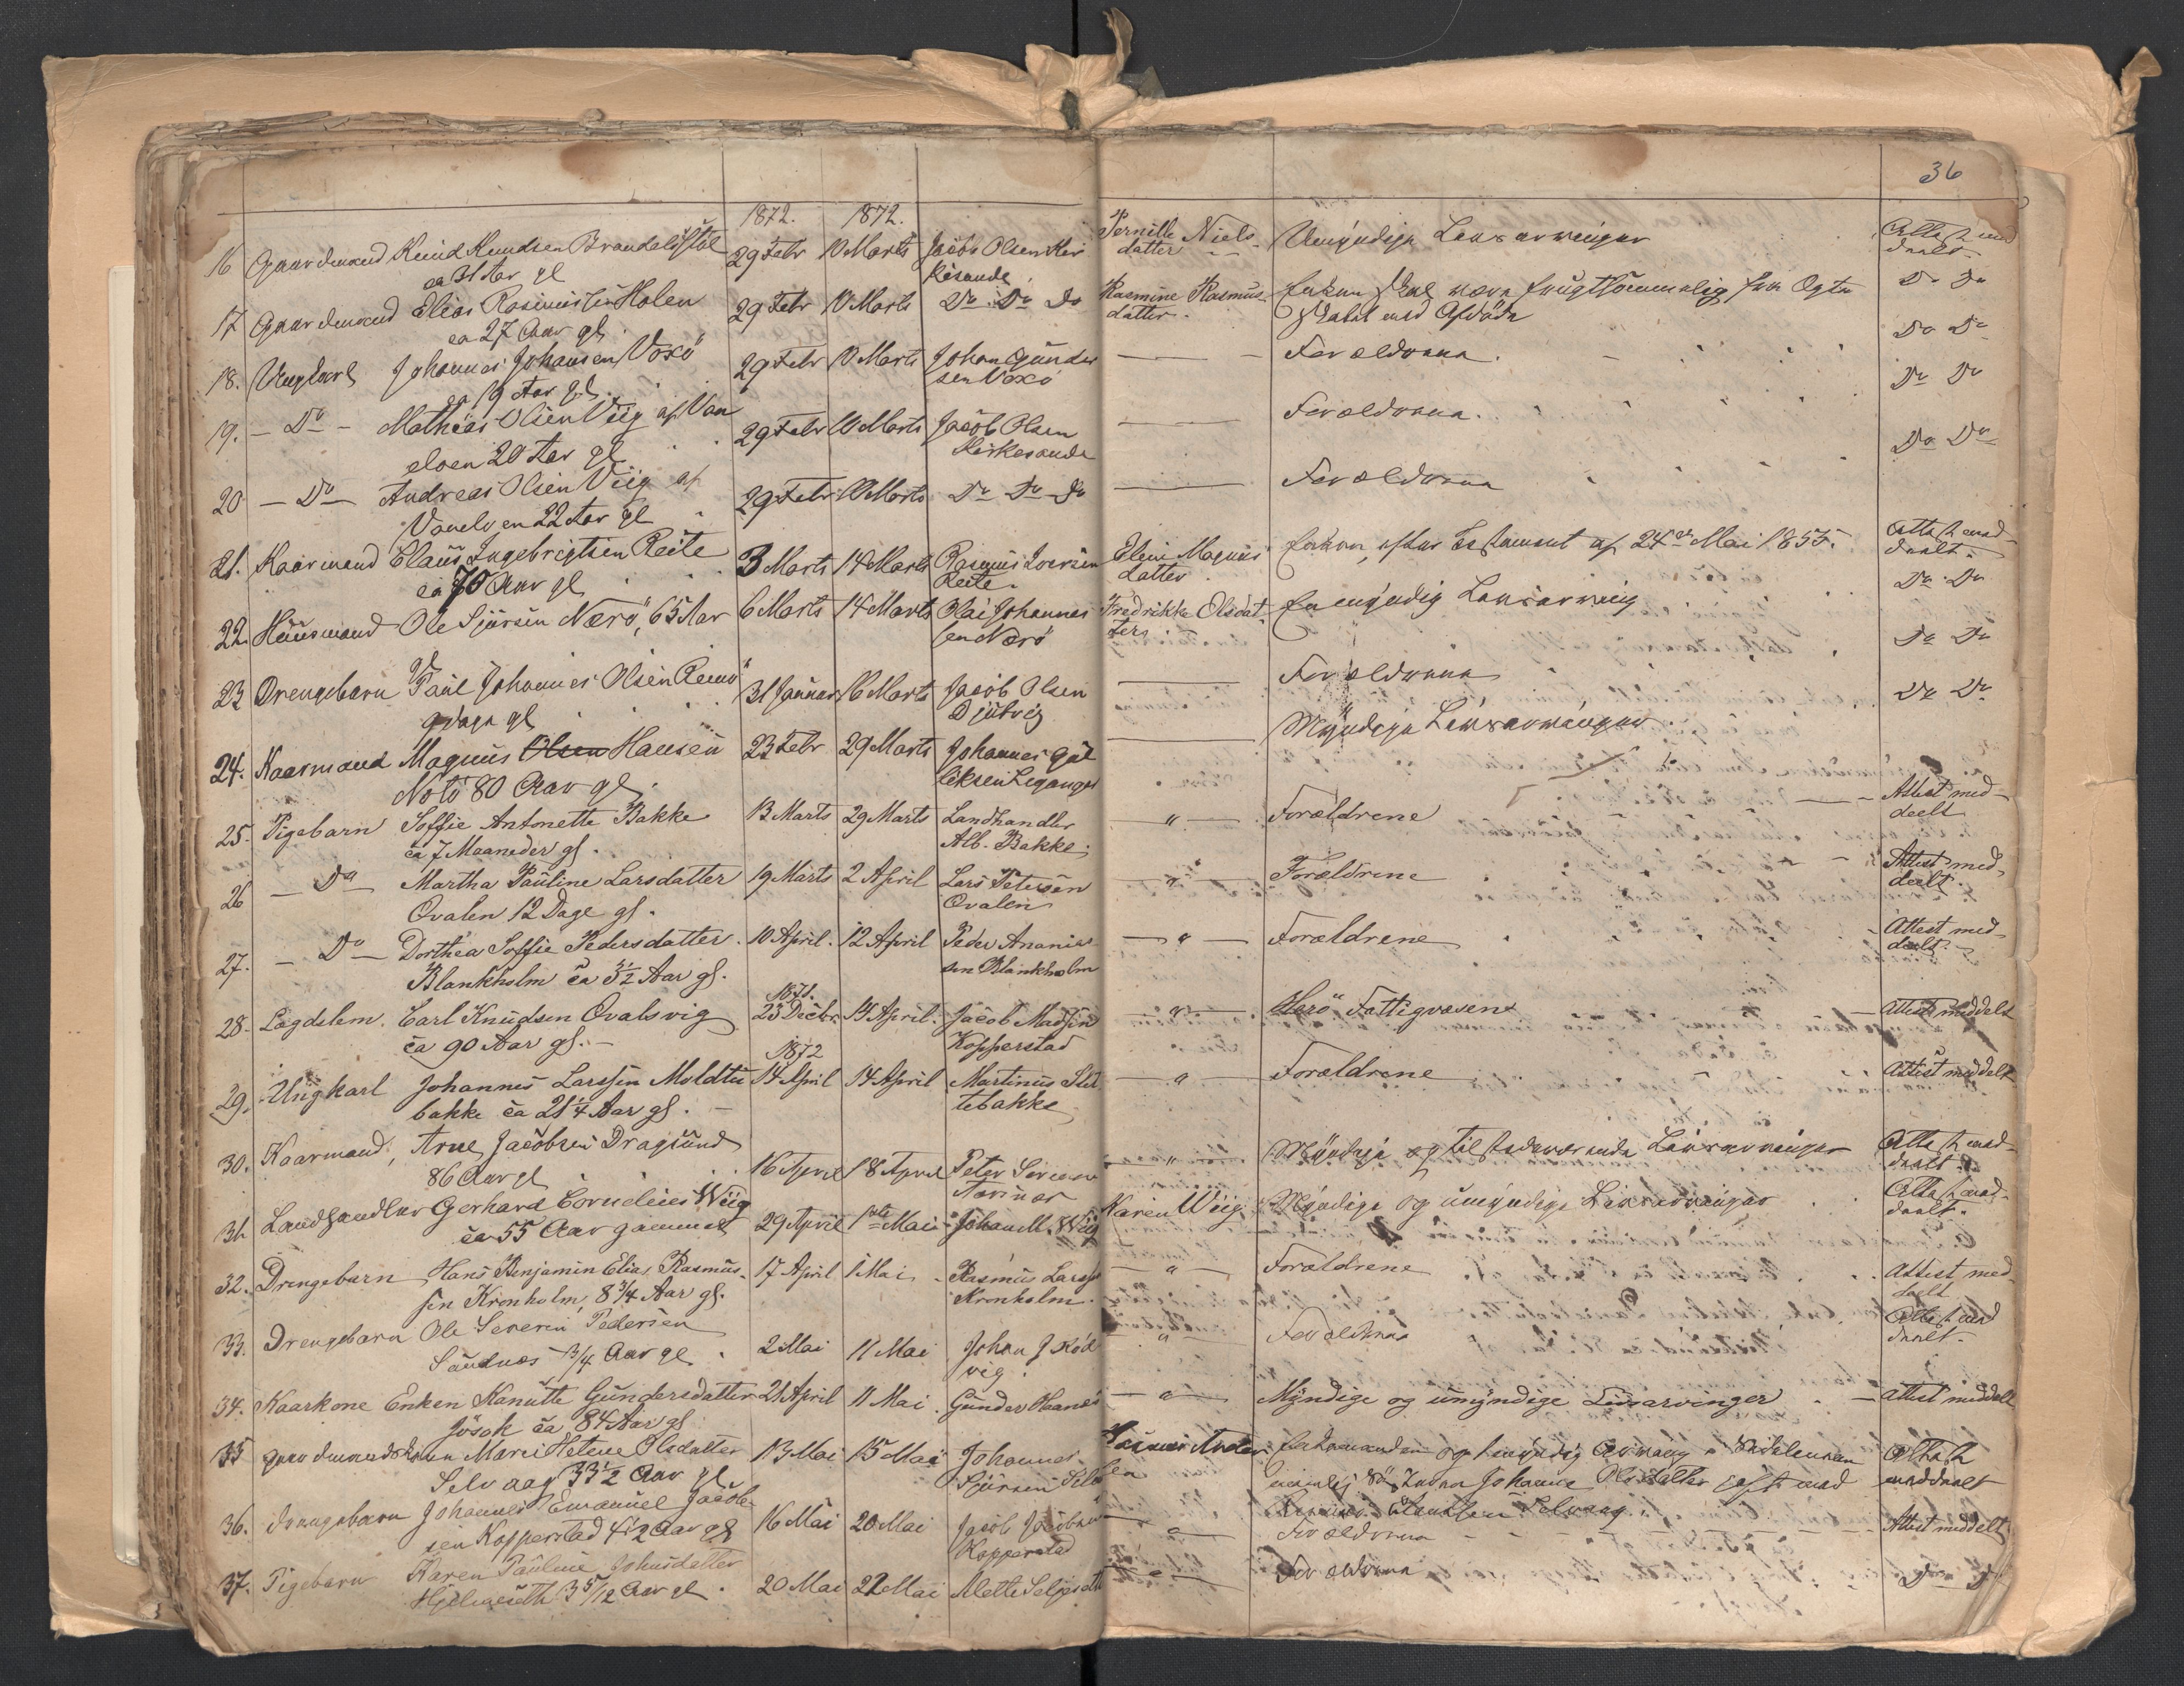 36
1872. 1872.
16 Gaardmand Knud Knudsen Brandalsstøl 29 Febr 10 Marts Jacob Olsen Kir Pernille Niels- Umyndige Livsarvinger Attest med
ca 31 Aar gl kesunde datter deelt
17 Gaardmand Elias Rasmussen Holen 29 Febr 10 Marts Do Do Do Rasmine Rasmus- Enken skal være frugtsommelig fra Egte Do Do
ca 27 Aar gl datter. skabet med Afdøde
18. Ungkarl Johannes Johansen Voxö 29 Febr 10 Marts Johan Gunder Forældrene Do Do
ca 19 Aar gl. sen Voxö
19. Do Mathias Olsen Viig af Van 29 Febr 10 Marts Jacob Olsen Forældrene. Do Do
elven 20 Aar gl Kirkesunde
20 Do Andreas Olsen Viig af 29 Febr 10 Marts Do Do Do Forældrene Do Do
Vanelven 22 Aar gl
21. Kaarmand Claus Ingebrigtsen Reite 3 Marts 14 Marts Rasmus Iversen Eline Magnus Enken, efter Testament af 24de Mai 1855. Attest med-
ca 70 Aar gl Reite. datter deelt.
22. Huusmand Ole Sjursen Nærö, 65 Aar 6 Marts 14 Marts Olai Johannes Fredrikke Olsdat- En myndig Livsarving Do Do
gl sen Nærö ters
23 Drengebarn Paul Johannes Olsen Remö 31 Januar 16 Marts Jacob Olsen Forældrene Do Do
9 Dage gl Djubvig
24. Kaarmand Magnus Olsen Hansen 23 Febr 29 Marts Johannes Gul Myndige Livsarvinger. Do Do
Notö 80 Aar gl. liksen Leganger
25. Pigebarn Soffie Antonette Bakke 13 Marts 29 Marts Landhandler " Forældrene Attest med-
ca 7 Maaneder gl. Alb. Bakke deelt
26 Do Martha Pauline Larsdatter 19 Marts 2 April Lars Petersen " Forældrene Attest med-
Qvalen 12 Dage gl. Qvalen deelt.
27. Do Dorthea Soffie Pedersdatter. 10 April. 12 April Peder Ananias- " Forældrene Attest med-
Blankholm ca 3½ Aar gl. sen Blankholm deelt.
1871.
28. Lægdslem. Carl Knudsen Qvalsvig 23 Decbr. 14 April. Jacob Madsen " Herö Fattigvæsen Attest meddelt
ca 90 Aar gl. Kopperstad
1872
29. Ungkarl Johannes Larssen Moldtu 14 April 14 April Martinus Slet " Forældrene Attest meddelt
bakke ca 21¼ Aar gl. tebakke
30. Kaarmand, Arne Jacobsen Dragsund 16 April 18 April Peter " Myndige og tilstedeværende Livsarvinger Attest med-
86 Aar gl deelt.
31. Landhandler Gerhard Cornelius Wiig 29 April 1ste Mai Johan M. Wiig Karen Wiig Myndige og umyndige Livsarvinger Attest med-
ca 55 Aar gammel deelt.
32. Drengebarn Hans Benjamin Elias Rasmus- 17 April 1 Mai Rasmus Larssen " Forældrene Attest med
sen Kronholm, 8¾ Aar gl. Kronholm. deelt
33. Drengebarn Ole Severin Pedersen 2 Mai 11 Mai Johan J Röd " Forældrene Attest med
Sandnæs ¾ Aar gl vig. deelt.
34. Kaarkone Enken Kanutte Gundersdatter 21 April 11 Mai. Gunder Hanes " Myndige og umyndige Livsarvinger attest meddelt
Jösok ca 84 Aar gl
35 Gaardmandskone Marie Helene Olsdatter 13 Mai 15 Mai Johannes Enkemanden og 1 myndig Arving Attest
Selvaag 33½ Aar gl. Sjursen Johanne Olsdatter gift med meddeelt
Selvaag
36. Drengebarn Johannes Emanuel Jacob- 16 Mai 20 Mai Jacob Jacobsen " Forældrene Attest meddelt
sen Kopperstad 4½ Aar gl Kopperstad
37. Pigebarn Karen Pauline Johnsdatter 20 Mai 22 Mai Mette " Forældrene Do Do
Hjelmeseth 3 5/12 Aar gl